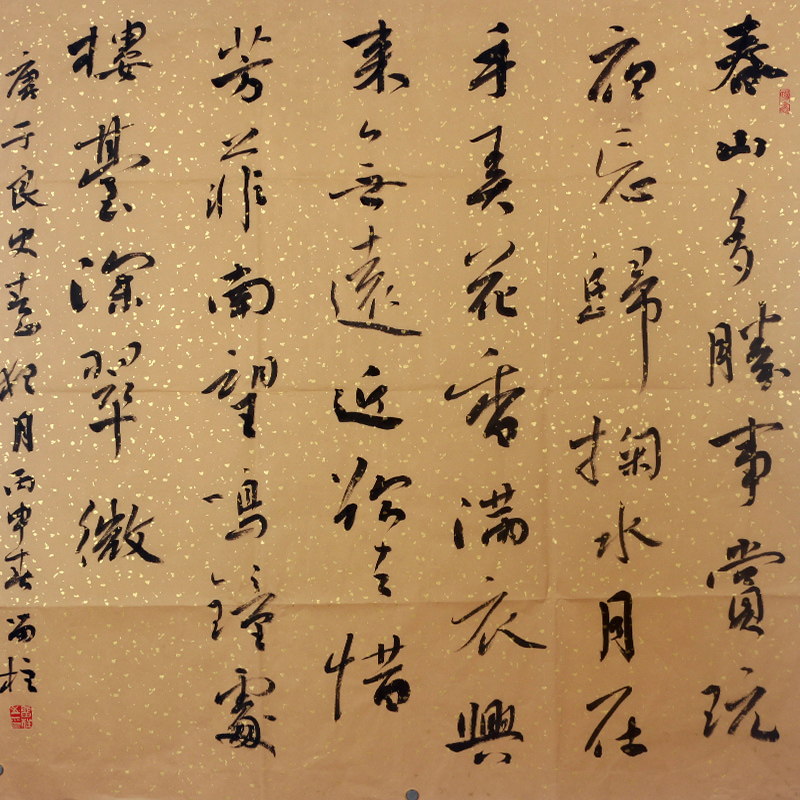 春山多勝事賞玩
夜忘歸掬水月在
手弄花香滿衣興
來無遠近欲去惜
芳菲南望鳴鐘處
樓臺深翠微
唐于良史春山夜月丙申春柱